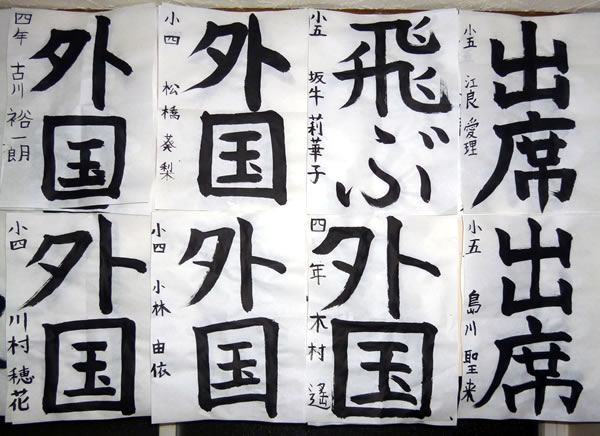 出席
小五 江良 愛理
飛ぶ
小五 坂牛 莉華子
外国
小四 松橋 葵梨
外国
四年 古川 裕一朗
出席
小五 島川 聖来
外国
四年 木村 遥
外国
小四 小林 由依
外国
小四 川村 穂花